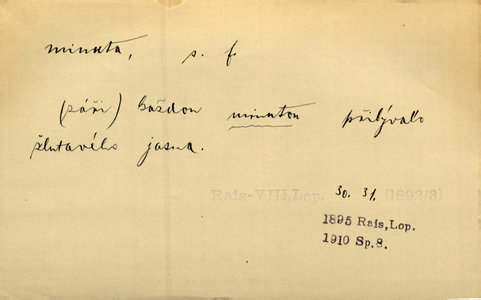 minuta, s. f.
(záři) každou minutou přibývalo
žlutavého jasna.
Rais-VIII. Lop. 30. 31. (1892/3)
1895 Rais, Lop.
1910 Sp. 8.